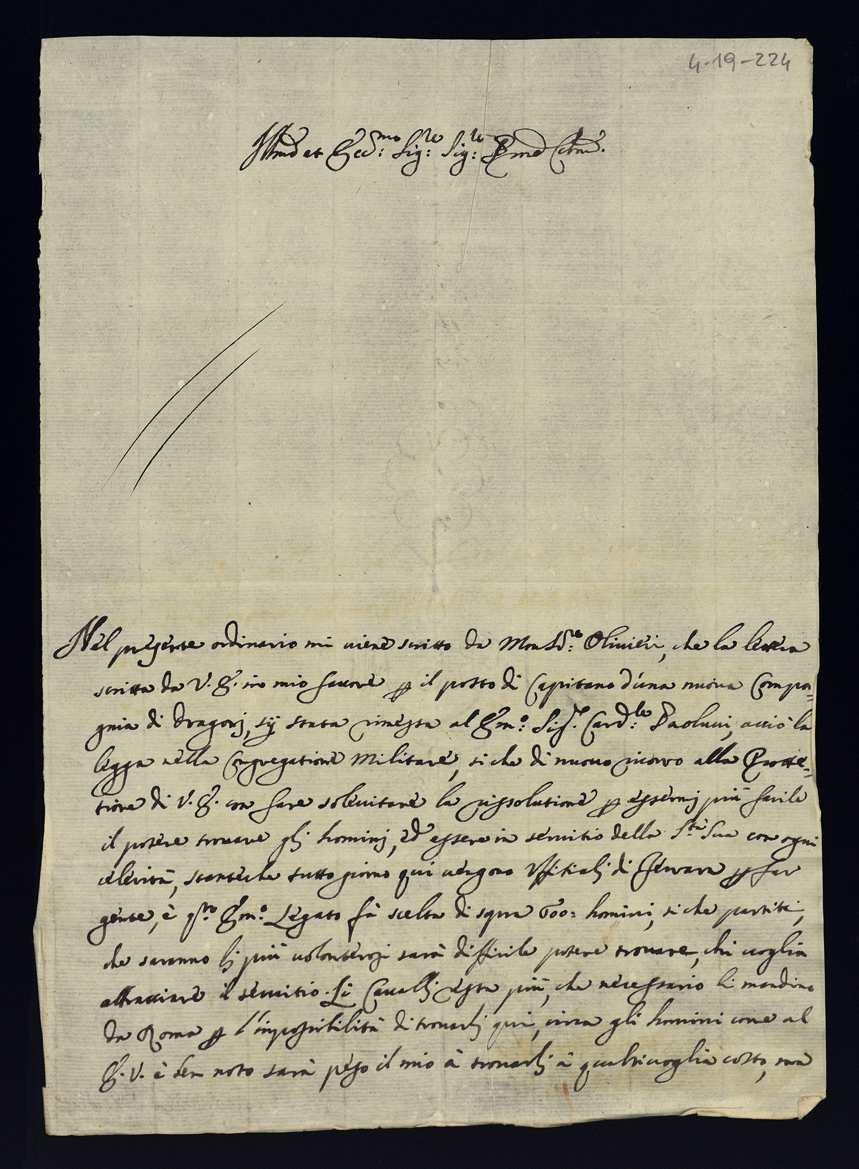 4-19-224
Illmo et Ecc:mo Sig:re Sig:re Pne Colmo.
Nel presente ordinario mi viene scritto da Monsig:re Olivieri, che la lettera
scritta da V. E. in mio favore p il posto di Capitano d'una nuova Compa=
gnia di dragonj, sij stata rimessa al Em:o Sig:r Card:le Paolucci, acciò la
legga nella Congregatione Militare, si che di nuovo ricorro alla Protte=
tione di V. E. con fare sollecitare la rissolutione p essermj più facile
il potere trovare glj hominj, ed essere in servitio della S:tà Sua con ogni
celerità, stanteche tutto giorno qui vengono Vffitialj di Ferrara p far
gente, è q:sto Em:o Legato fà scelta di sopra 600: homini, si che partiti,
che saranno lj più volonterosj sarà difficile potere trovare, chi voglia
abbracciare il servitio. Li Cavallj resta più, che necessario li mandino
da Roma p l'impossibilità di trovarlj qui, circa gli homini come al
E. V. è ben noto sarà peso il mio à trovarlj à qualsivoglia costo, ma